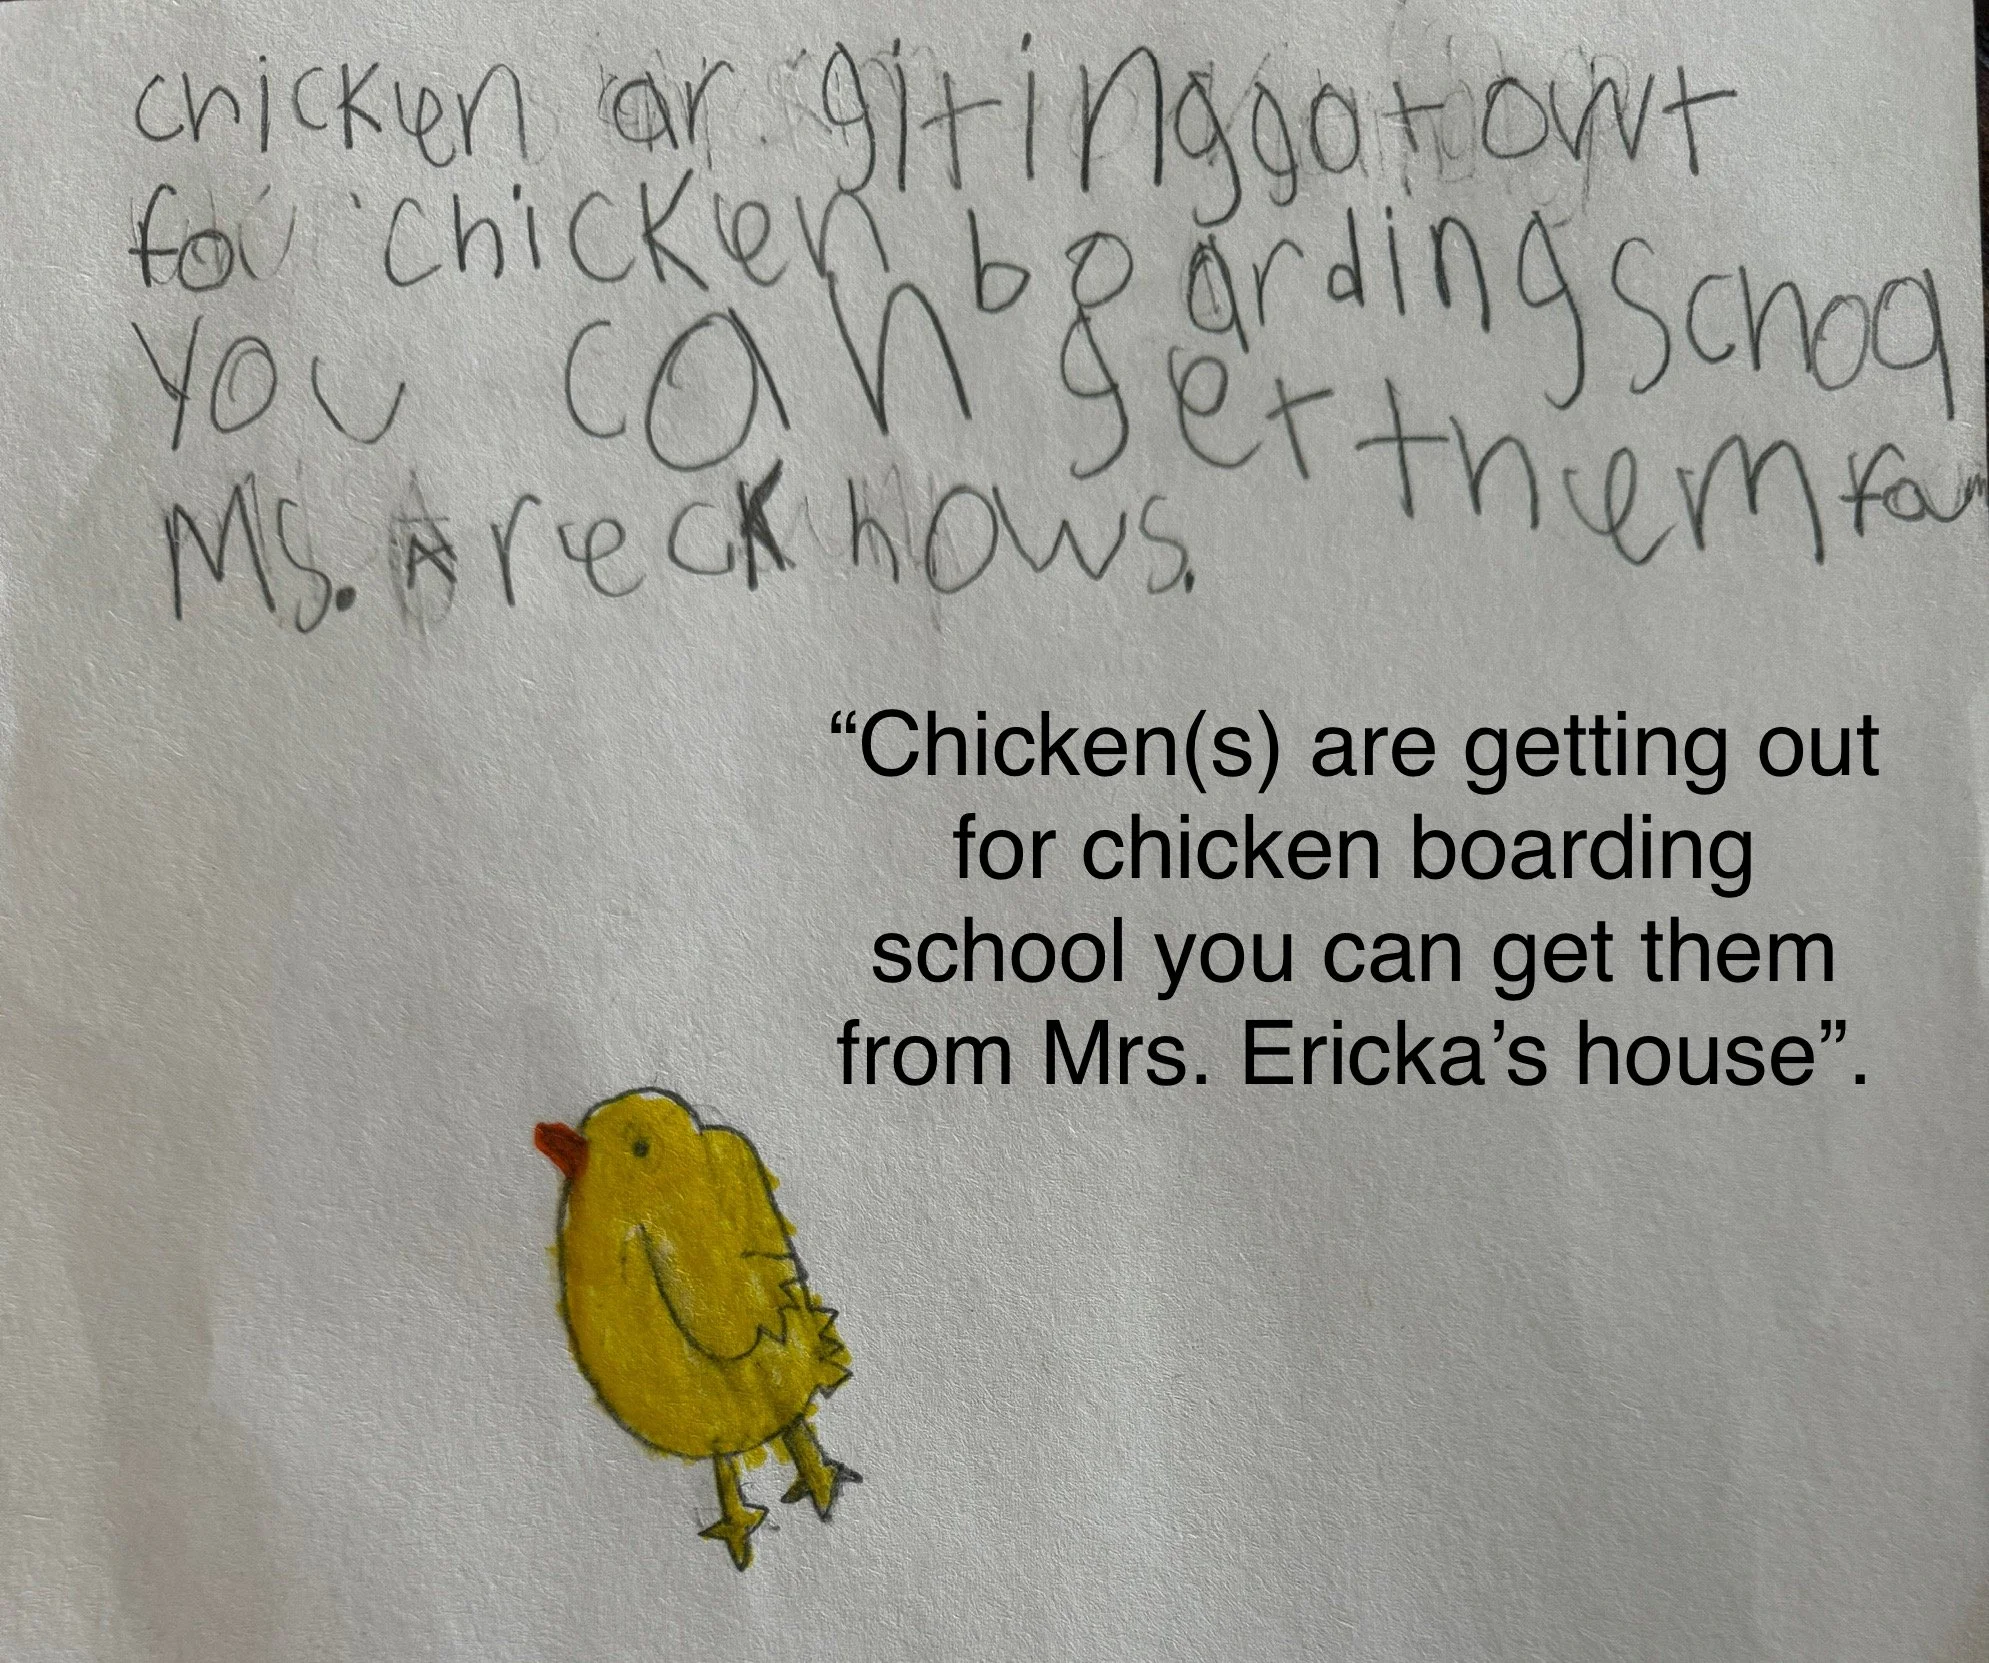 chicken ar giting got owt
fou chicken boarding schoo
you can get them fom
Ms. Areck hows.
“Chicken(s) are getting out
for chicken boarding
school you can get them
from Mrs. Ericka’s house”.